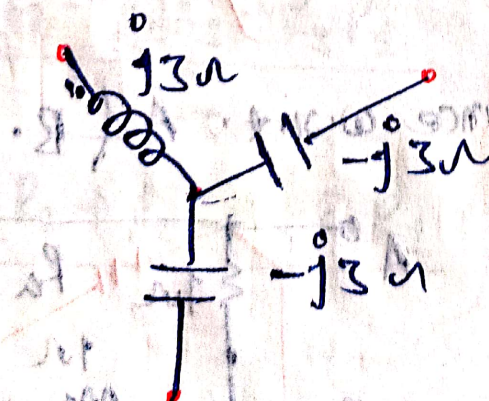 j3Ω
-j3Ω
-j3Ω